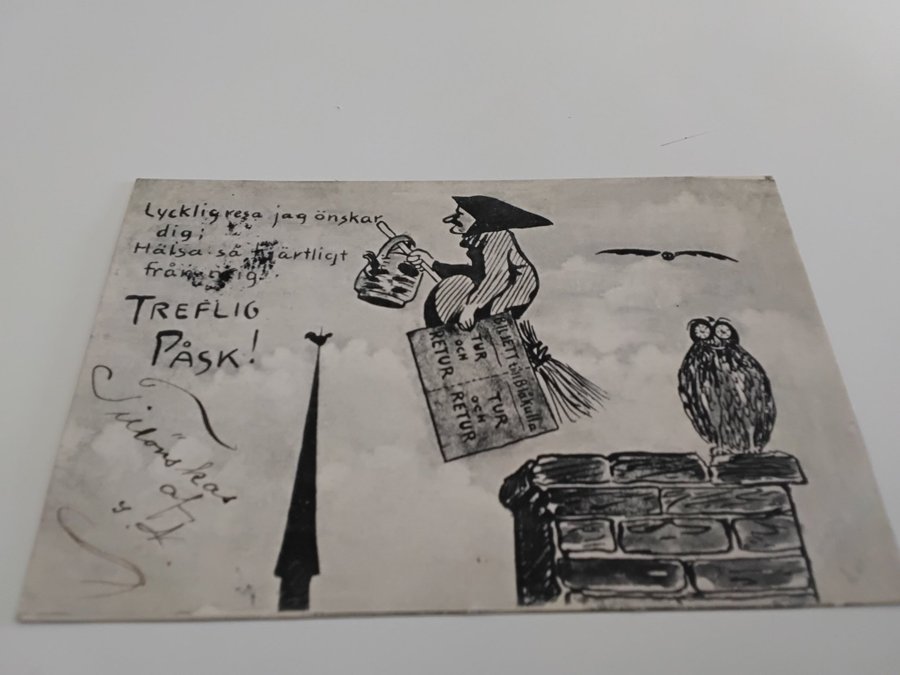 Lycklig resa jag önskar
dig;
Hälsa så hjärtligt
från mig.
TREFLIG
PÅSK!
Tillönskas
af
BILJETT till Blåkulla
TUR
OCH
RETUR
TUR
OCH
RETUR